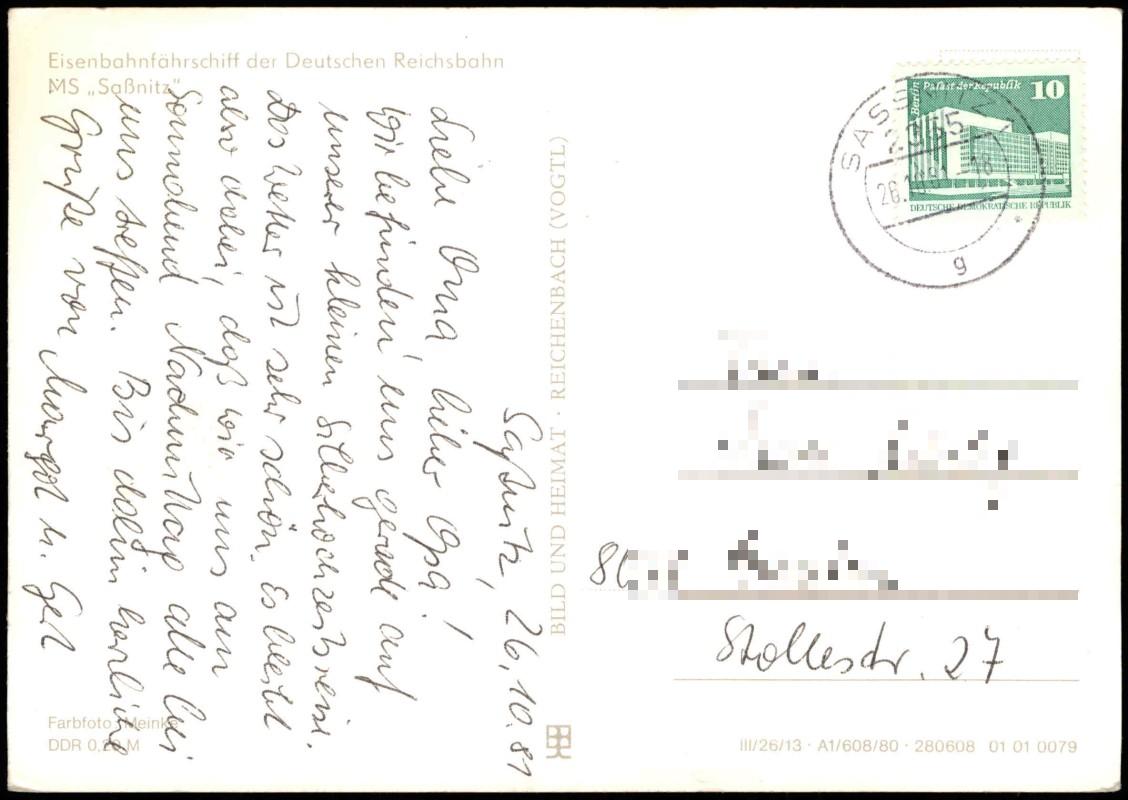 Eisenbahnfährschiff der Deutschen Reichsbahn
MS „Saßnitz“
Saßnitz, 26.10.81
Liebe Oma, lieber Opa!
Wir befinden uns gerade auf
unserer kleinen Silberhochzeitsreise.
Das Wetter ist sehr schön. Es bleibt
also dabei, daß wir uns am
Sonnabend Nachmittag alle bei
uns treffen. Bis dahin herzliche
Grüße von Margot u. Gert
Farbfoto: Meinke
DDR 0,20 M
BILD UND HEIMAT · REICHENBACH (VOGTL)
Berlin
Palast der Republik
10
DEUTSCHE DEMOKRATISCHE REPUBLIK
SASSNITZ
2355
26.10.81 -18
g
Stollestr. 27
III/26/13 · A1/608/80 · 280608 01 01 0079